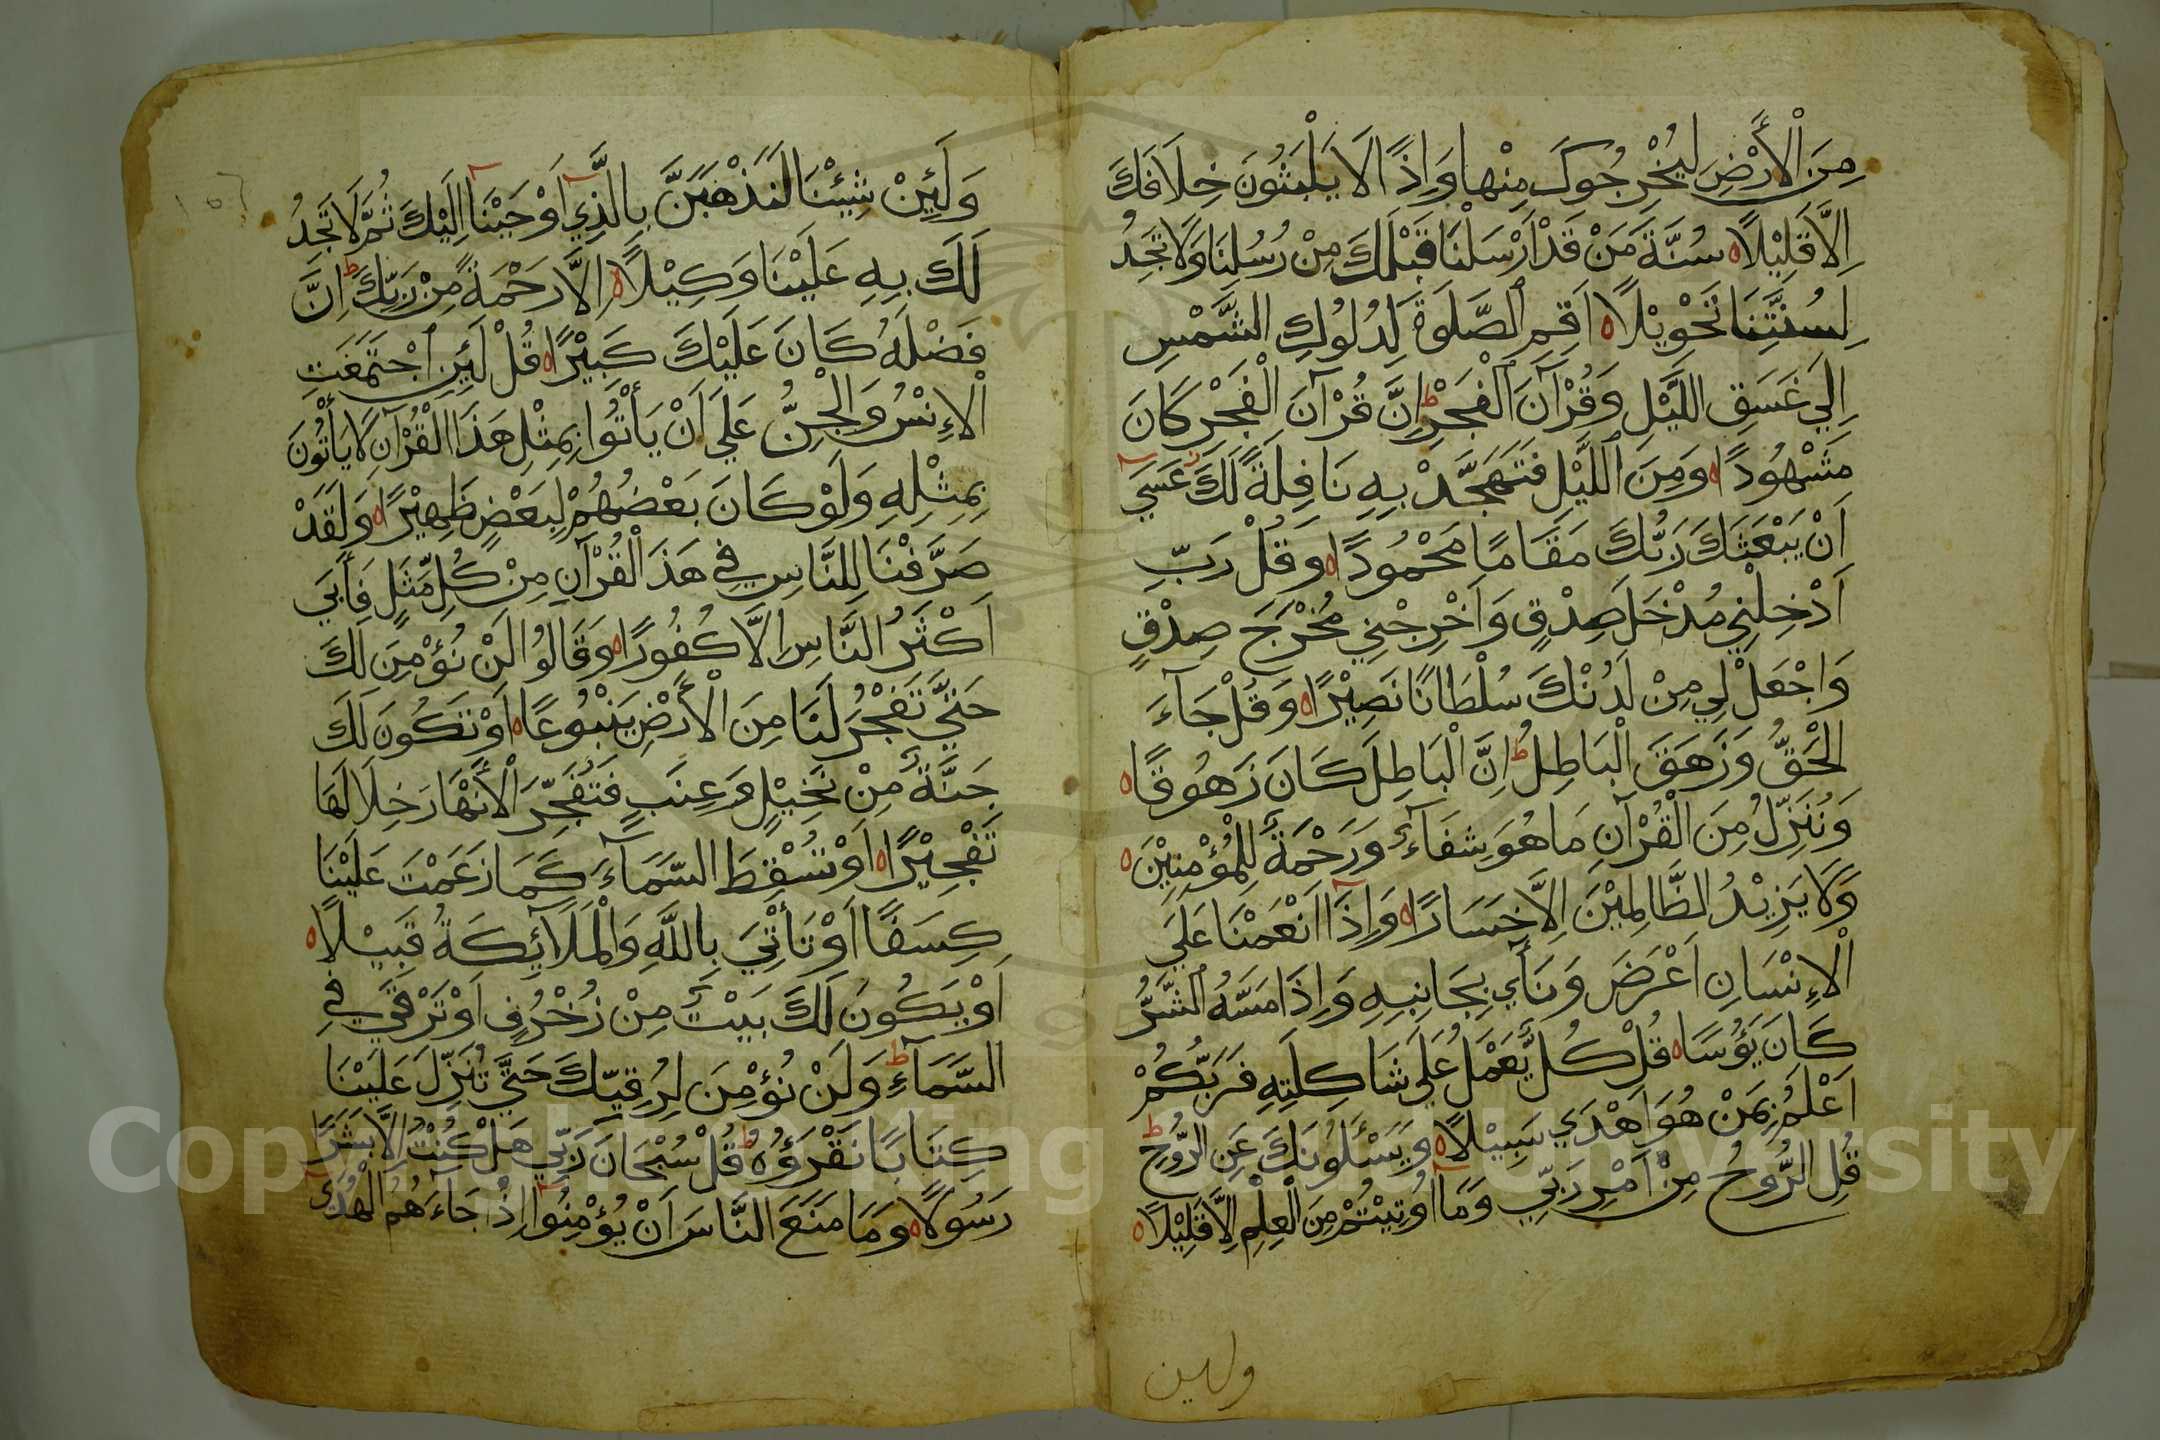 مِنَ الْأَرْضِ لِيُخْرِجُوكَ مِنْهَا وَإِذًا لَا يَلْبَثُونَ خِلَافَكَ
إِلَّا قَلِيْلًا ه سُنَّةَ مَنْ قَدْ أَرْسَلْنَا قَبْلَكَ مِنْ رُسُلِنَا وَلَا تَجِدُ
لِسُنَّتِنَا تَحْوِيْلًا ه اَقِمِ الصَّلَوةَ لِدُلُوكِ الشَّمْسِ
اِلَي غَسَقِ اللَّيْلِ وَقُرْآنَ الْفَجْرِ ط اِنَّ قُرْآنَ الْفَجْرِ كَانَ
مَشْهُودًا ه وَمِنَ اللَّيْلِ فَتَهَجَّدْ بِهِ نَافِلَةً لَكَ عَسَي
اَنْ يَبْعَثَكَ رَبُّكَ مَقَامًا مَحْمُودًا ه وَقُلْ رَبِّ
اَدْخِلْنِي مُدْخَلَ صِدْقٍ وَاَخْرِجْنِي مُخْرَجَ صِدْقٍ
وَاجْعَلْ لِي مِنْ لَدُنْكَ سُلْطَانًا نَصِيْرًا ه وَقُلْ جَآءَ
الْحَقُّ وَزَهَقَ الْبَاطِلُ ط اِنَّ الْبَاطِلَ كَانَ زَهُوقًا ه
وَنُنَزِّلُ مِنَ الْقُرْآنِ مَا هُوَ شِفَآءٌ وَرَحْمَةٌ لِلْمُؤْمِنِيْنَ ه
وَلَا يَزِيْدُ الظَّالِمِيْنَ اِلَّا خَسَارًا ه وَاِذَا اَنْعَمْنَا عَلَي
الْاِنْسَانِ اَعْرَضَ وَنَأَي بِجَانِبِهِ وَاِذَا مَسَّهُ الشَّرُّ
كَانَ يَؤُسًا ه قُلْ كُلٌّ يَعْمَلُ عَلَي شَاكِلَتِهِ فَرَبُّكُمْ
اَعْلَمُ بِمَنْ هُوَ اَهْدَي سَبِيْلًا ه وَيَسْئَلُونَكَ عَنِ الرُّوحِ ط
قُلِ الرُّوحُ مِنْ اَمْرِ رَبِّي وَمَا اُوتِيْتُمْ مِنَ الْعِلْمِ اِلَّا قَلِيْلًا ه
ولين
وَلَئِنْ شِئْنَا لَنَذْهَبَنَّ بِالَّذِي اَوْحَيْنَا اِلَيْكَ ثُمَّ لَا تَجِدُ
لَكَ بِهِ عَلَيْنَا وَكِيْلًا ه اِلَّا رَحْمَةً مِنْ رَبِّكَ ط اِنَّ
فَضْلَهُ كَانَ عَلَيْكَ كَبِيْرًا ه قُلْ لَئِنِ اجْتَمَعَتِ
الْاِنْسُ وَالْجِنُّ عَلَي اَنْ يَأْتُوا بِمِثْلِ هَذَا الْقُرْآنِ لَا يَأْتُونَ
بِمِثْلِهِ وَلَوْ كَانَ بَعْضُهُمْ لِبَعْضٍ ظَهِيْرًا ه وَلَقَدْ
صَرَّفْنَا لِلنَّاسِ فِي هَذَا الْقُرْآنِ مِنْ كُلِّ مَثَلٍ فَأَبَي
اَكْثَرُ النَّاسِ اِلَّا كُفُورًا ه وَقَالُوا لَنْ نُؤْمِنَ لَكَ
حَتَّي تَفْجُرَ لَنَا مِنَ الْأَرْضِ يَنْبُوعًا ه اَوْ تَكُونَ لَكَ
جَنَّةٌ مِنْ نَخِيْلٍ وَعِنَبٍ فَتُفَجِّرَ الْأَنْهَارَ خِلَالَهَا
تَفْجِيْرًا ه اَوْ تُسْقِطَ السَّمَآءَ كَمَا زَعَمْتَ عَلَيْنَا
كِسَفًا اَوْ تَأْتِيَ بِاللَّهِ وَالْمَلَآئِكَةِ قَبِيْلًا ه
اَوْ يَكُونَ لَكَ بَيْتٌ مِنْ زُخْرُفٍ اَوْ تَرْقَي فِي
السَّمَآءِ ط وَلَنْ نُؤْمِنَ لِرُقِيِّكَ حَتَّي تُنَزِّلَ عَلَيْنَا
كِتَابًا نَقْرَؤُهُ ط قُلْ سُبْحَانَ رَبِّي هَلْ كُنْتُ اِلَّا بَشَرًا
رَسُولًا ه وَمَا مَنَعَ النَّاسَ اَنْ يُؤْمِنُوا اِذْ جَآءَهُمُ الْهُدَي